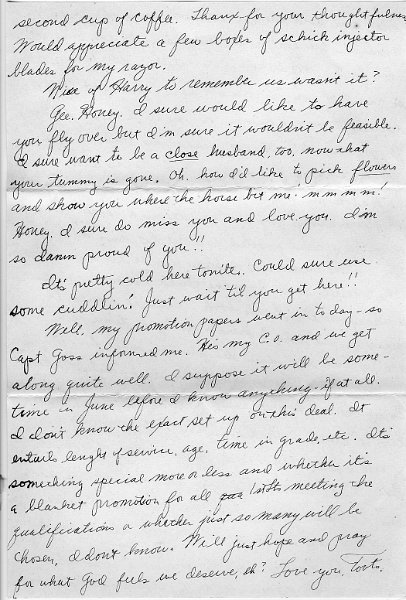 second cup of coffee. Thanx for your thoughtfulness
Would appreciate a few boxes of schick injector
blades for my razor.
Nice of Harry to remember us wasn't it?
Gee, Honey. I sure would like to have
you fly over but I'm sure it wouldn't be feasible.
I sure want to be a close husband, too, now that
your tummy is gone. Oh. how I'd like to pick flowers
and show you where the horse bit me! m m m m!
Honey, I sure do miss you and love you. I'm
so damn proud of you!!
It's pretty cold here tonite. Could sure use
some cuddlin'. Just wait 'til you get here!!
Well, my promotion papers went in to day - so
Capt Goss informed me. He's my C.O. and we get
along quite well. I suppose it will be some-
time in June before I know anything - if at all.
I don't know the exact set up on this deal. It
entails lenght of service, age, time in grade, etc. It's
something special more or less and whether it's
a blanket promotion for all meeting the
qualifications or whether just so many will be
chosen, I don't know. We'll just hope and pray
for what God feels we deserve, eh? Love you,